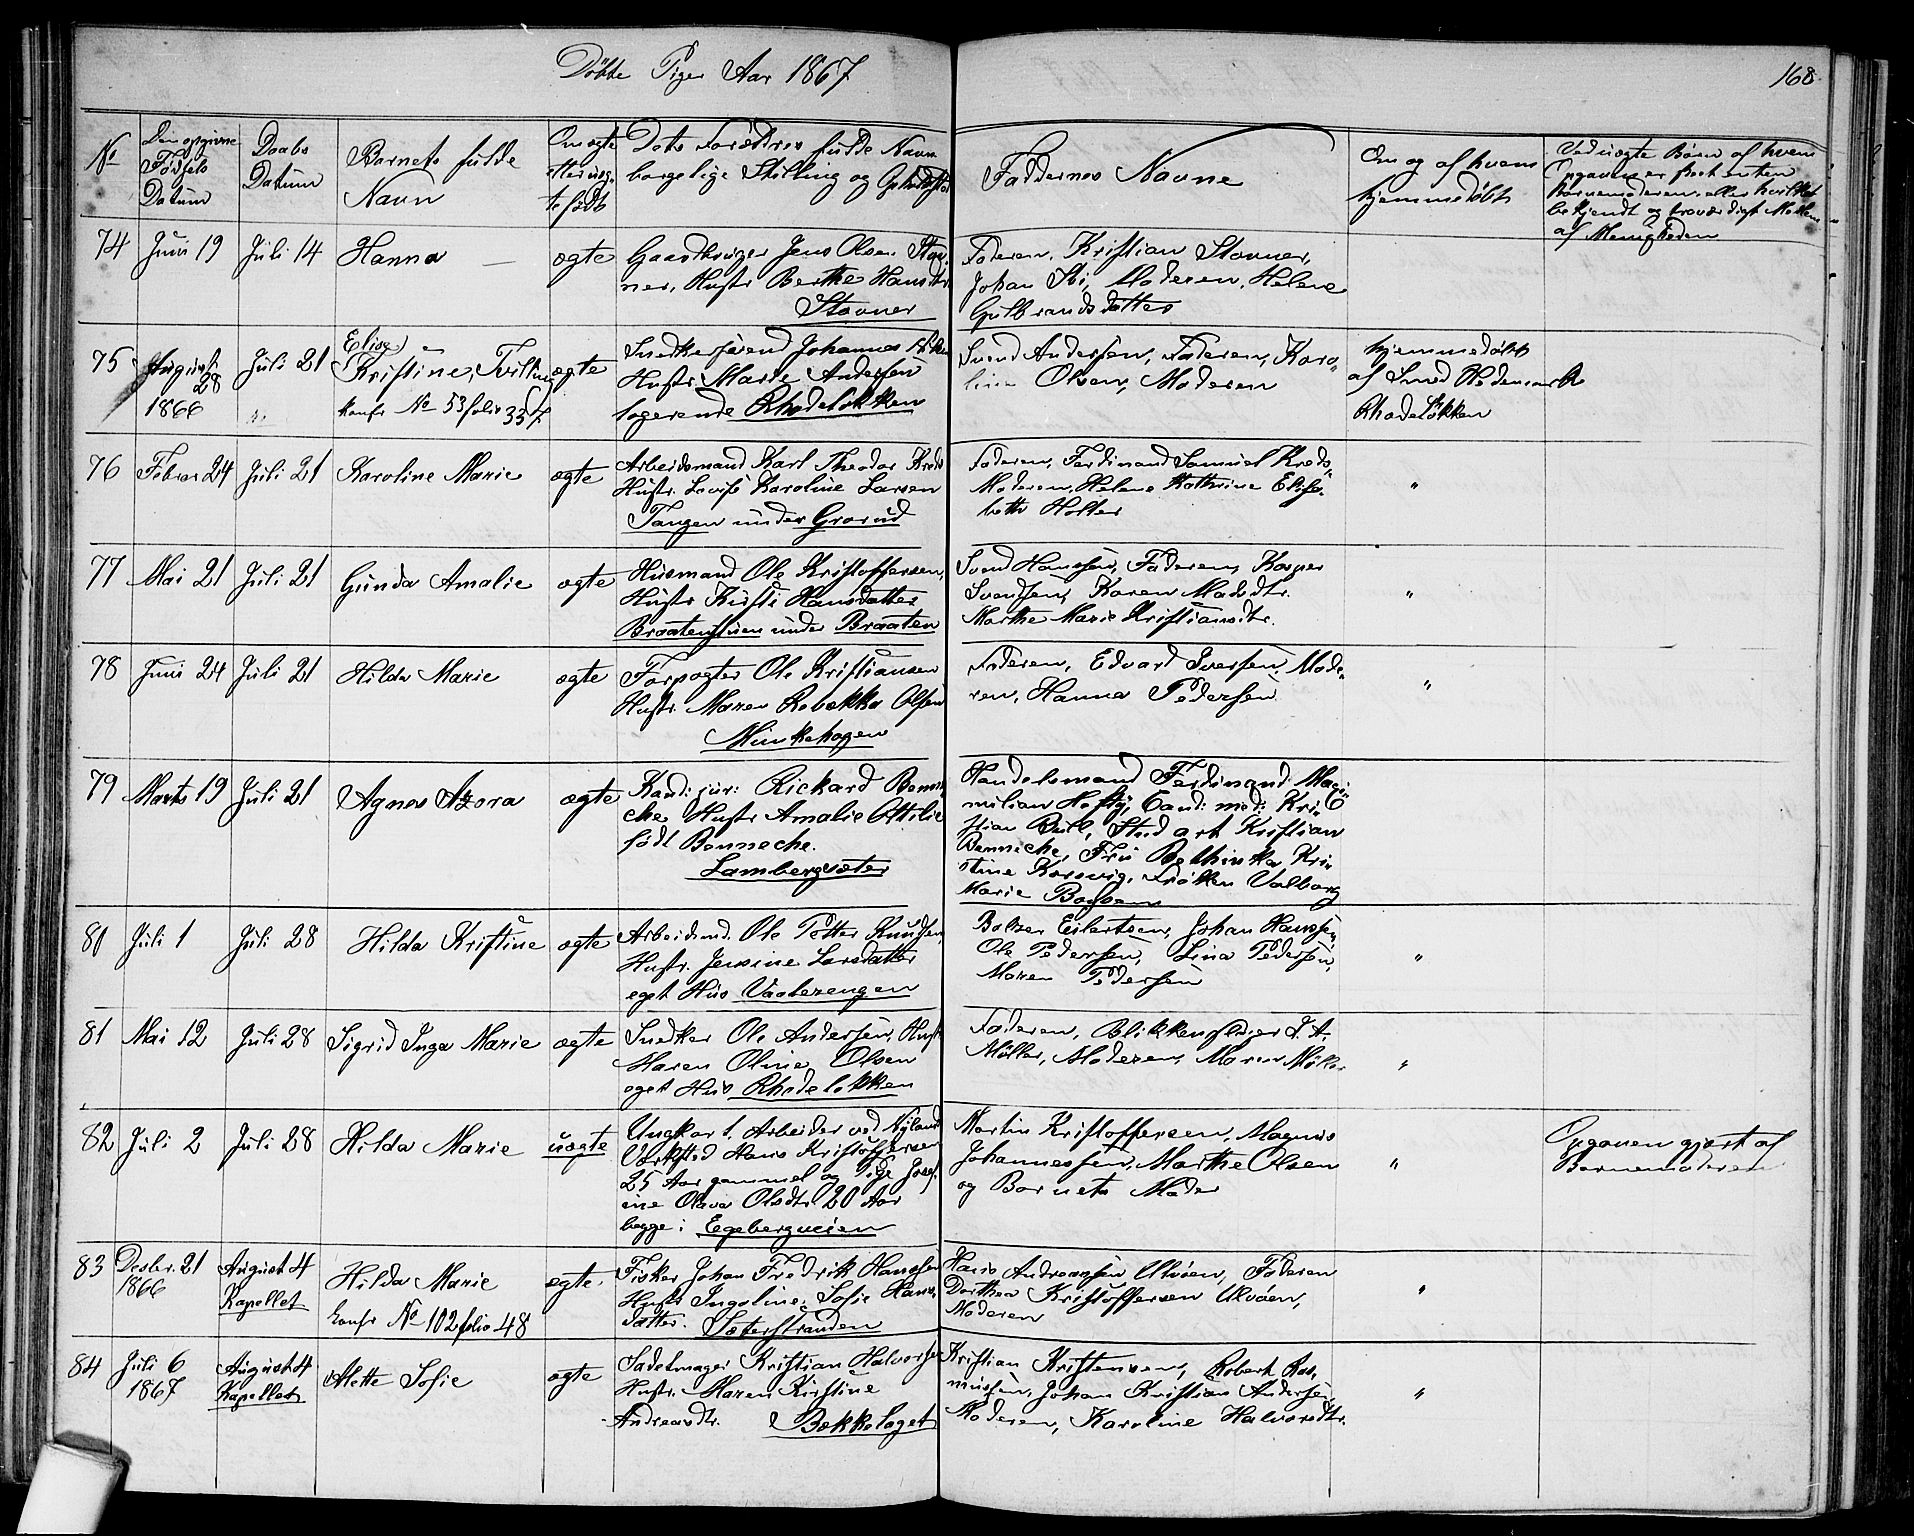 Döbte Piger Aar 1867
168
No
Den opgivne Fødsels Datum
Daabs Datum
Barnets fulde Navn
Om ægte eller uægte født
Dets Forældres fulde Navn borgelige Stilling og Opholdssted
Faddernes Navne
Om og af hvem hjemmedøbt
Ved uægte Børn af hvem Opgaven er skeet enten Barnemoderen eller hvilket bekjendt og troværdigt Medlem af Menigheden
74 Juni 19 Juli 14 Hanna — ægte
Gaardbruger Jens Olsen Stov-
ner, Hustr Berthe Hansdtr
Stovner
Faderen, Kristian Stovner,
Johan Sti, Moderen, Helene
Gulbrandsdatter
75 August 28 1866 Juli 21
Elise
Kristine, Tvilling ægte
konfr No 53 folio 357.
Snedkersvend Johannes
Hustr Marie Andersen
logerende Rhodeløkken
Svend Andersen, Faderen, Karo-
line Olsen, Moderen
hjemmedøbt
af Smed Hedemark
Rhodeløkken
76 Febrar 24 Juli 21 Karoline Marie ægte
Arbeidsmand Karl Theodor Krods
Hustr. Lovise Karoline Larsen
Tangen under Grorud
Faderen, Ferdinand Samuel Krods,
Moderen, Helene Kathrine Elisa-
beth Holter
"
77 Mai 21 Juli 21 Gunda Amalie ægte
Husmand Ole Kristoffersen,
Hustr Kirsti Hansdatter
Braatenstuen under Braaten
Svend Hanssen, Faderen, Kasper
Svendsen, Karen Madsdtr.
Marthe Marie Kristiansdtr.
"
78 Juni 24 Juli 21 Hilda Marie ægte
Forpagter Ole Kristiansen
Hustr. Maren Rebekka Olsen
Munkehagen
Faderen, Edvard Iversen, Mode-
ren, Hanna Pedersen
"
79 Marts 19 Juli 21 Agnes Azora ægte
Kand: jur: Rickard Benne-
che Hustr Amalie Ottilie
født Benneche.
Lambergsæter
Handelsmand Ferdinand Maxi-
milian Hefty, Cand: med: Kri-
stian Bull, Stud art Kristian
Benneche, Fru Bethinka Kri-
stine Korsvig, Frøken Valborg
Marie Boysen
80 Juli 1 Juli 28 Hilda Kristine ægte
Arbeidsmd. Ole Petter Knudsen,
Hustr. Jensine Larsdatter
eget Hus Vaalerengen
Baltzer Eilertsen, Johan Hanssen,
Ole Pedersen, Lina Pedersen,
Maren Pedersen
"
81 Mai 12 Juli 28 Sigrid Inga Marie ægte
Snedker Ole Andersen, Hustr
Maren Oline Olsen
eget Hus Rhodeløkken
Faderen, Blikkenslager J. A.
Møller, Moderen, Maren Møller
"
82 Juli 2 Juli 28 Hilda Marie uægte
Ungkar 1, Arbeider ved Nyland
Værksted Hans Kristoffersen
25 Aar gammel og Pige Josef-
ine Olava Olsdtr 20 Aar
begge i Egebergveien
Martin Kristoffersen, Magnus
Johannessen, Marthe Olsen
og Barnets Moder
"
Opgaven gjort af
Barnemoderen
83 Decbr. 21 1866 August 4 Kapellet
Hilda Marie ægte
konfr No 102 folio 48
Fisker Johan Fredrik Hanssen
Hustr Ingeline Sofie Hans-
datter. Sæterstranden
Hans Andreassen Ulvøen, Faderen
Dorthea Kristoffersen Ulvøen,
Moderen
"
84 Juli 6 1867 August 4 Kapellet Mette Sofie ægte
Sadelmager Kristian Halvorsen
Hustr. Maren Kirstine
Andreasdtr. Bekkelaget
Kristian Kristensen, Robert Ras-
mussen, Johan Kristian Andersen
Moderen, Karoline Halvorsdtr.
"